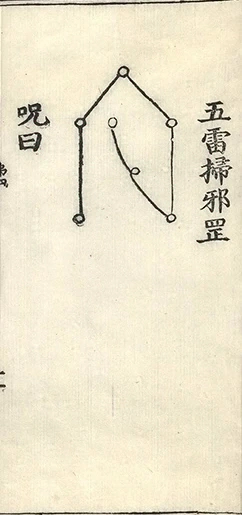 五雷掃邪罡
咒曰